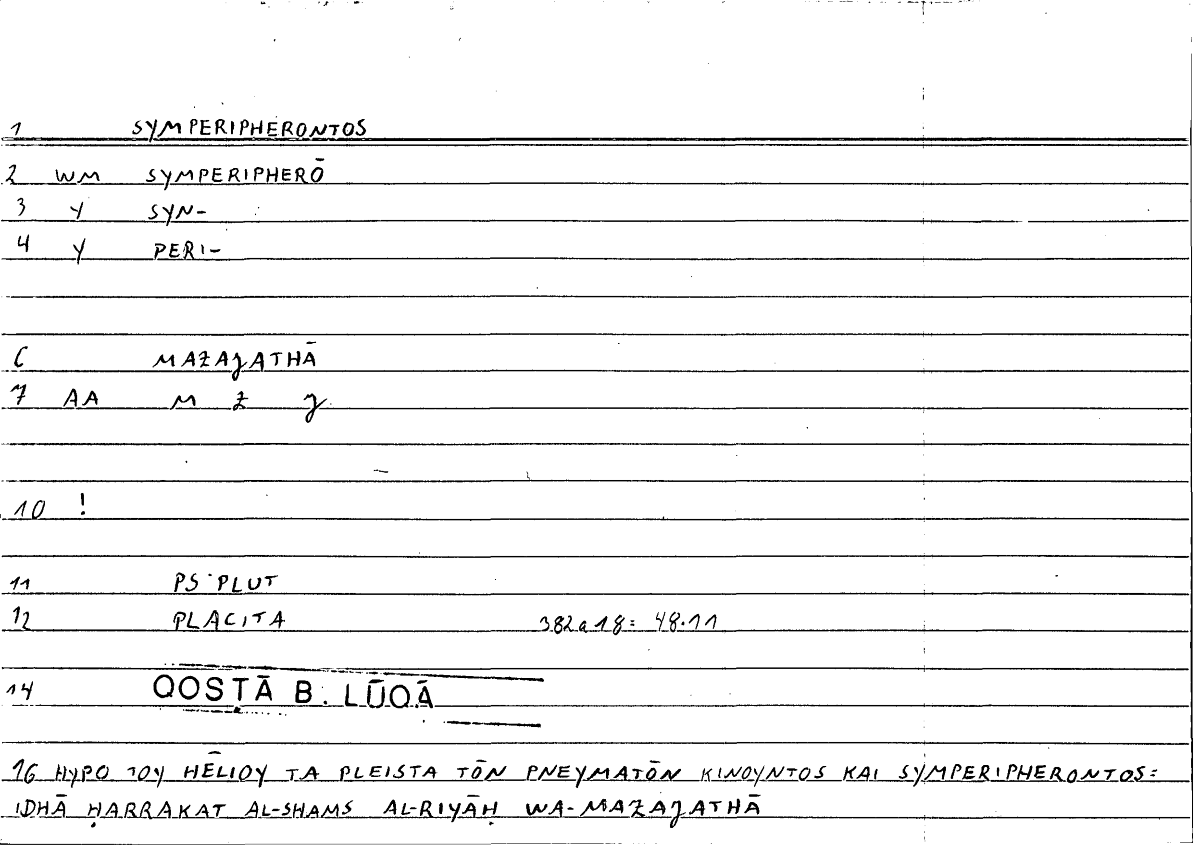 1 SYMPERIPHERONTOS
2 WM SYMPERIPHERŌ
3 Y SYN-
4 Y PERI-
6 MAZAJATHĀ
7 AA M Z J
10 !
11 PS PLUT
12 PLACITA 382a18= 48.11
14 QOSṬĀ B. LŪQĀ
16 HYPO TOY HĒLIOY TA PLEISTA TŌN PNEYMATŌN KINOYNTOS KAI SYMPERIPHERONTOS=
IDHĀ ḤARRAKAT AL-SHAMS AL-RIYĀḤ WA-MAZAJATHĀ